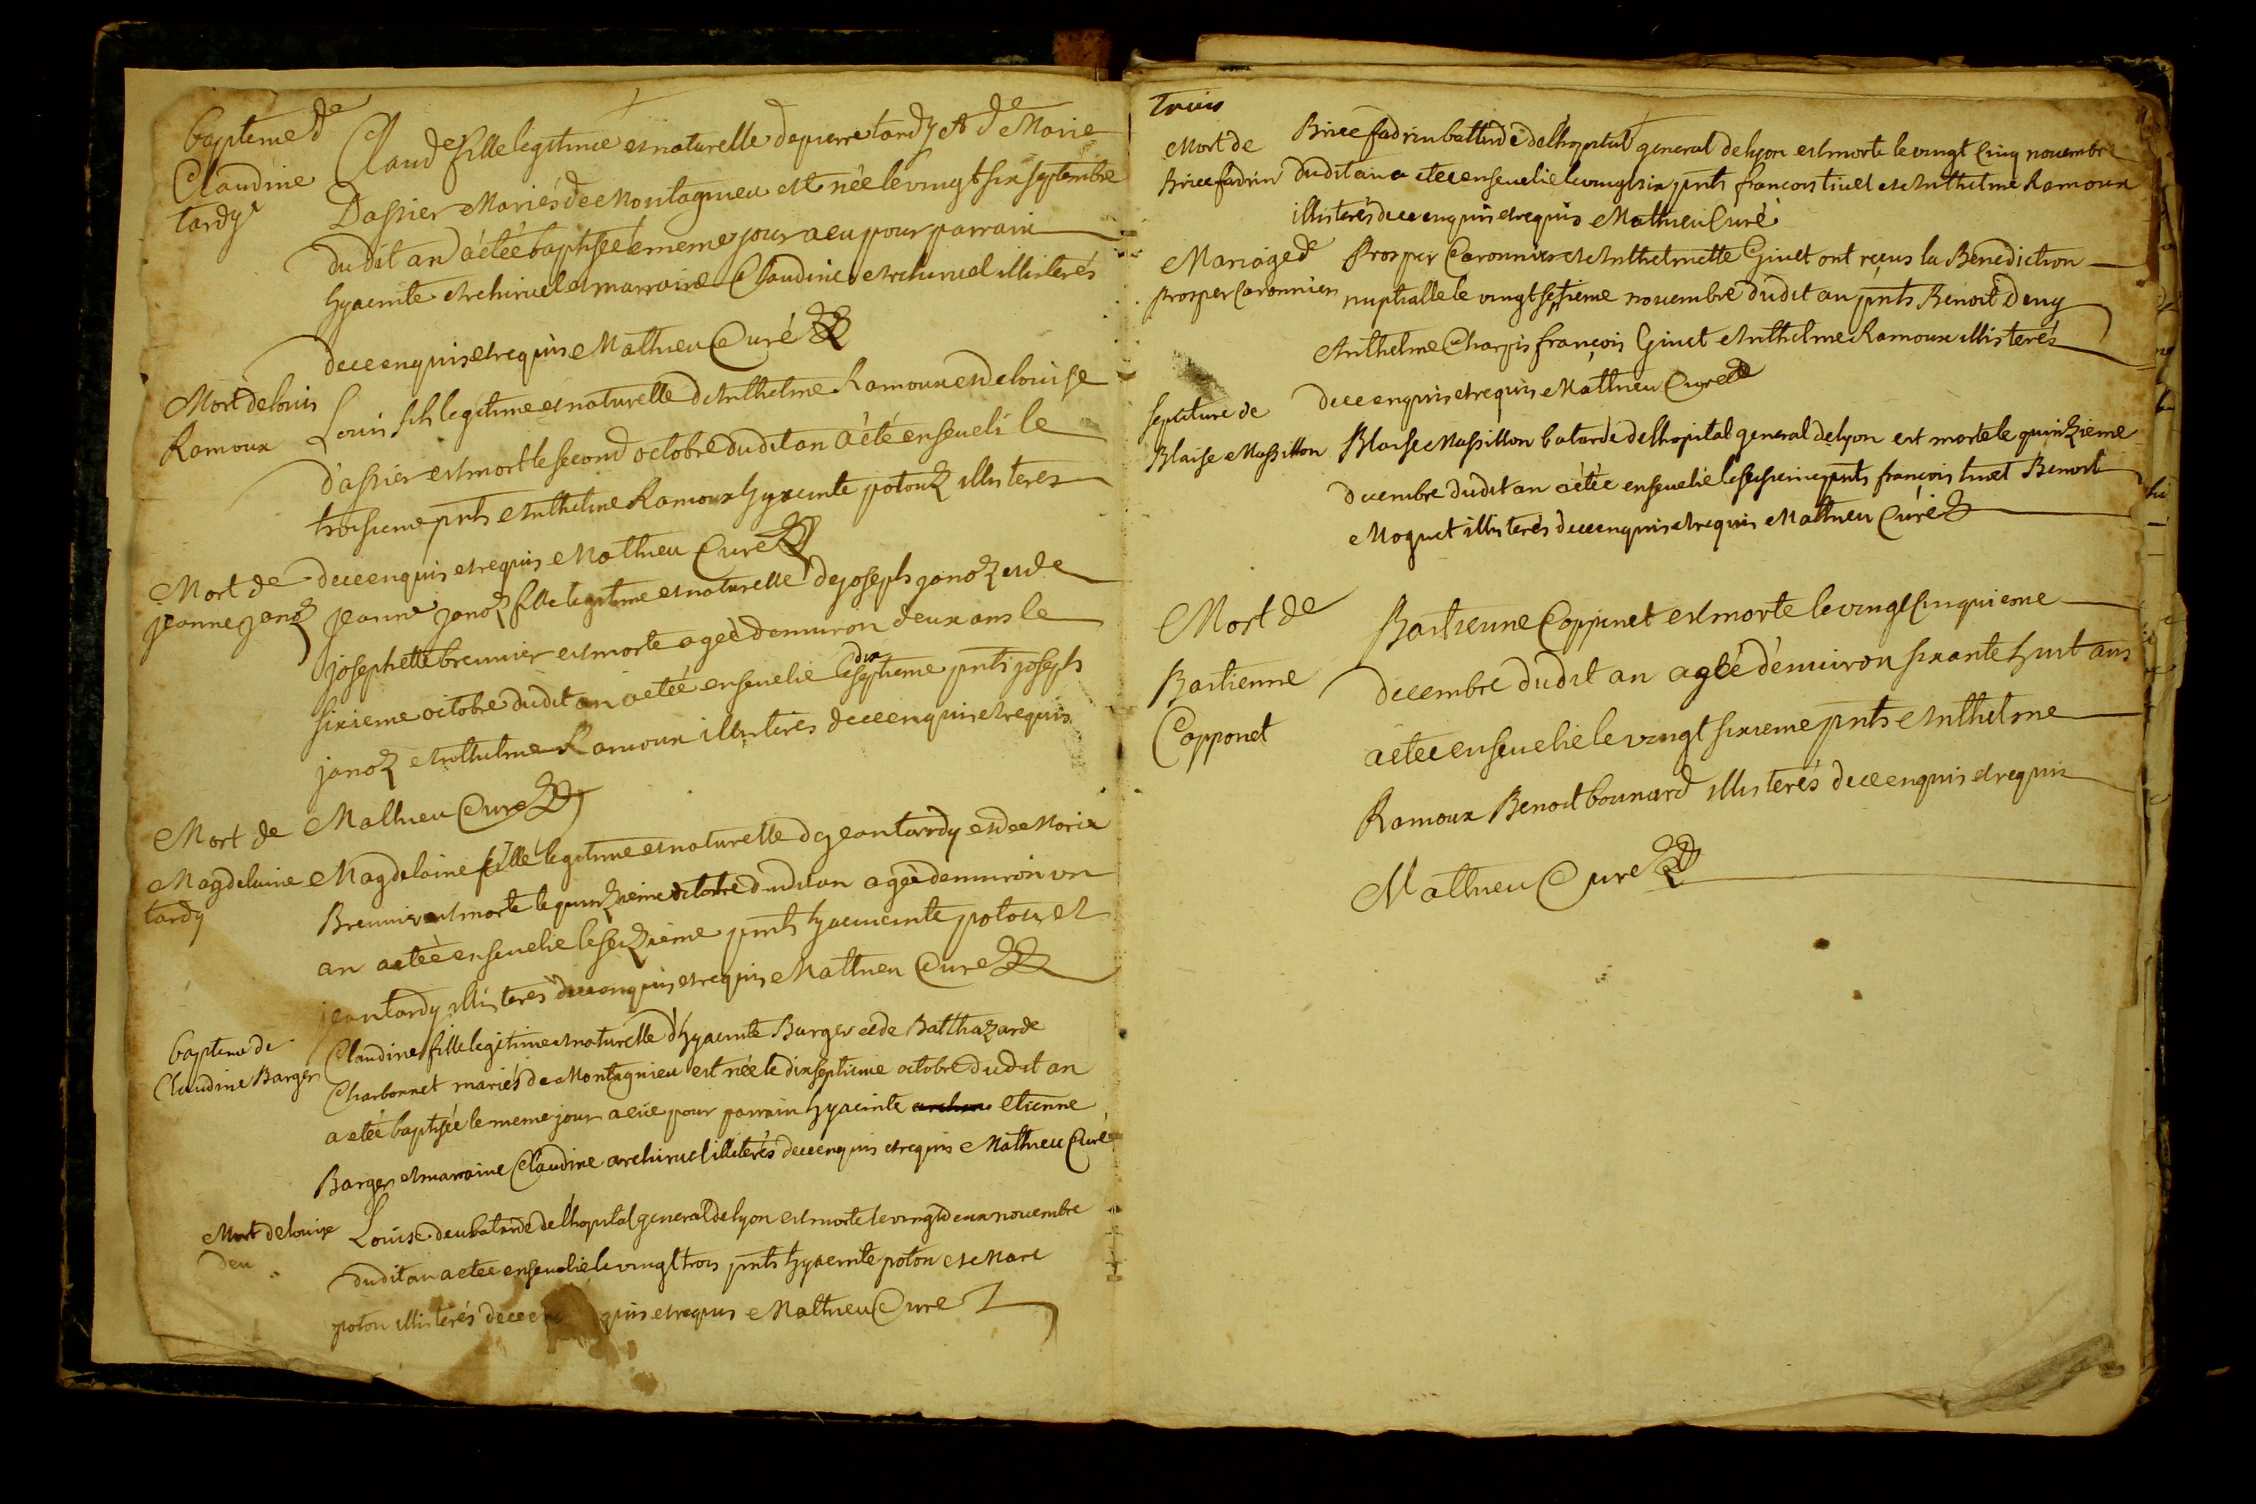 bapteme de
Claudine
tardy
Claude fille legitime et naturelle de pierre tardy et de Marie
Dassier Mariés de Montagnieu est née le vingt six septembre
dudit an a été baptisée le meme jour a eu pour parrain
hyacinte Archiruel et marraine Claudine Archiruel illisterés
de ce enquis et requis Mathieu Curé
Mort de louis
Ramoux
Louis fils legitime et naturelle d'Anthelme Ramoux et de louise
dassier est mort le second octobre dudit an a été enseveli le
troisieme pnts Anthelme Ramoux hyacinte potouz illisteres
de ce enquis et requis Mathieu Curé
Mort de
jeanne janoz
jeanne janoz fille legitime et naturelle de joseph janoz et de
josephette brennier est morte ageé d'environ deux ans le
sixieme octobre dudit an a eteé ensevelie le dix septieme pnts joseph
janoz Anthelme Ramoux illisteres de ce enquis et requis
Mathieu Curé
Mort de
Magdelaine
tardy
Magdelaine fille legitime et naturelle de jean tardy et de Marie
Brennier est morte le quinzieme octobre dudit an ageé d'environ un
an a eteé ensevelie le seizieme pnts hyacinte potou et
jean tardy illisteres de ce enquis et requis Mathieu Curé
bapteme de
Claudine Barger
Claudine fille legitime et naturelle d'hyacinte Barger et de Balthazarde
Charbonnet mariés de Montagnieu est née le dix septieme octobre dudit an
a eté baptisée le meme jour a eu pour parrain hyacinte etienne
Barger et marraine Claudine archiruel illiterés de ce enquis et requis Mathieu Curé
Mort de louise
deu
Louise deu batarde de l'hopital general de lyon est morte le vingt deux novembre
dudit an a eteé ensevelie le vingt trois pnts hyacinte poton et Marc
poton illisterés de ce enquis et requis Mathieu Curé
trois
Mort de
Brice fadrin
Brice fadrin battarde de l'hopital general de lyon est morte le vingt cinq novembre
dudit an a eteé ensevelie le vingt six pnts francois tivet et Anthelme Ramoux
illisterés de ce enquis et requis Mathieu Curé
Mariage de
prosper Caronnier
Prosper Caronnier et Anthelmette Ginet ont reçus la Benediction
nuptialle le vingt septieme novembre dudit an pnts Benoit Deny
Anthelme Charpis françois Ginet Anthelme Ramoux illisterés
de ce enquis et requis Mathieu Curé
sepulture de
Blaise Massillon
Blaise Massillon batarde de l'hopital general de lyon est morte le quinzieme
decembre dudit an a été ensevelie le seisieme pnts françois tivet Benoit
Moquet illisterés de ce enquis et requis Mathieu Curé
Mort de
Bastienne
Copponet
Bastienne Copponet est morte le vingt cinquieme
decembre dudit an ageé d'environ sixante huit ans
a eteé ensevelie le vingt sixieme pnts Anthelme
Ramoux Benoit bounard illisterés de ce enquis et requis
Mathieu Curé